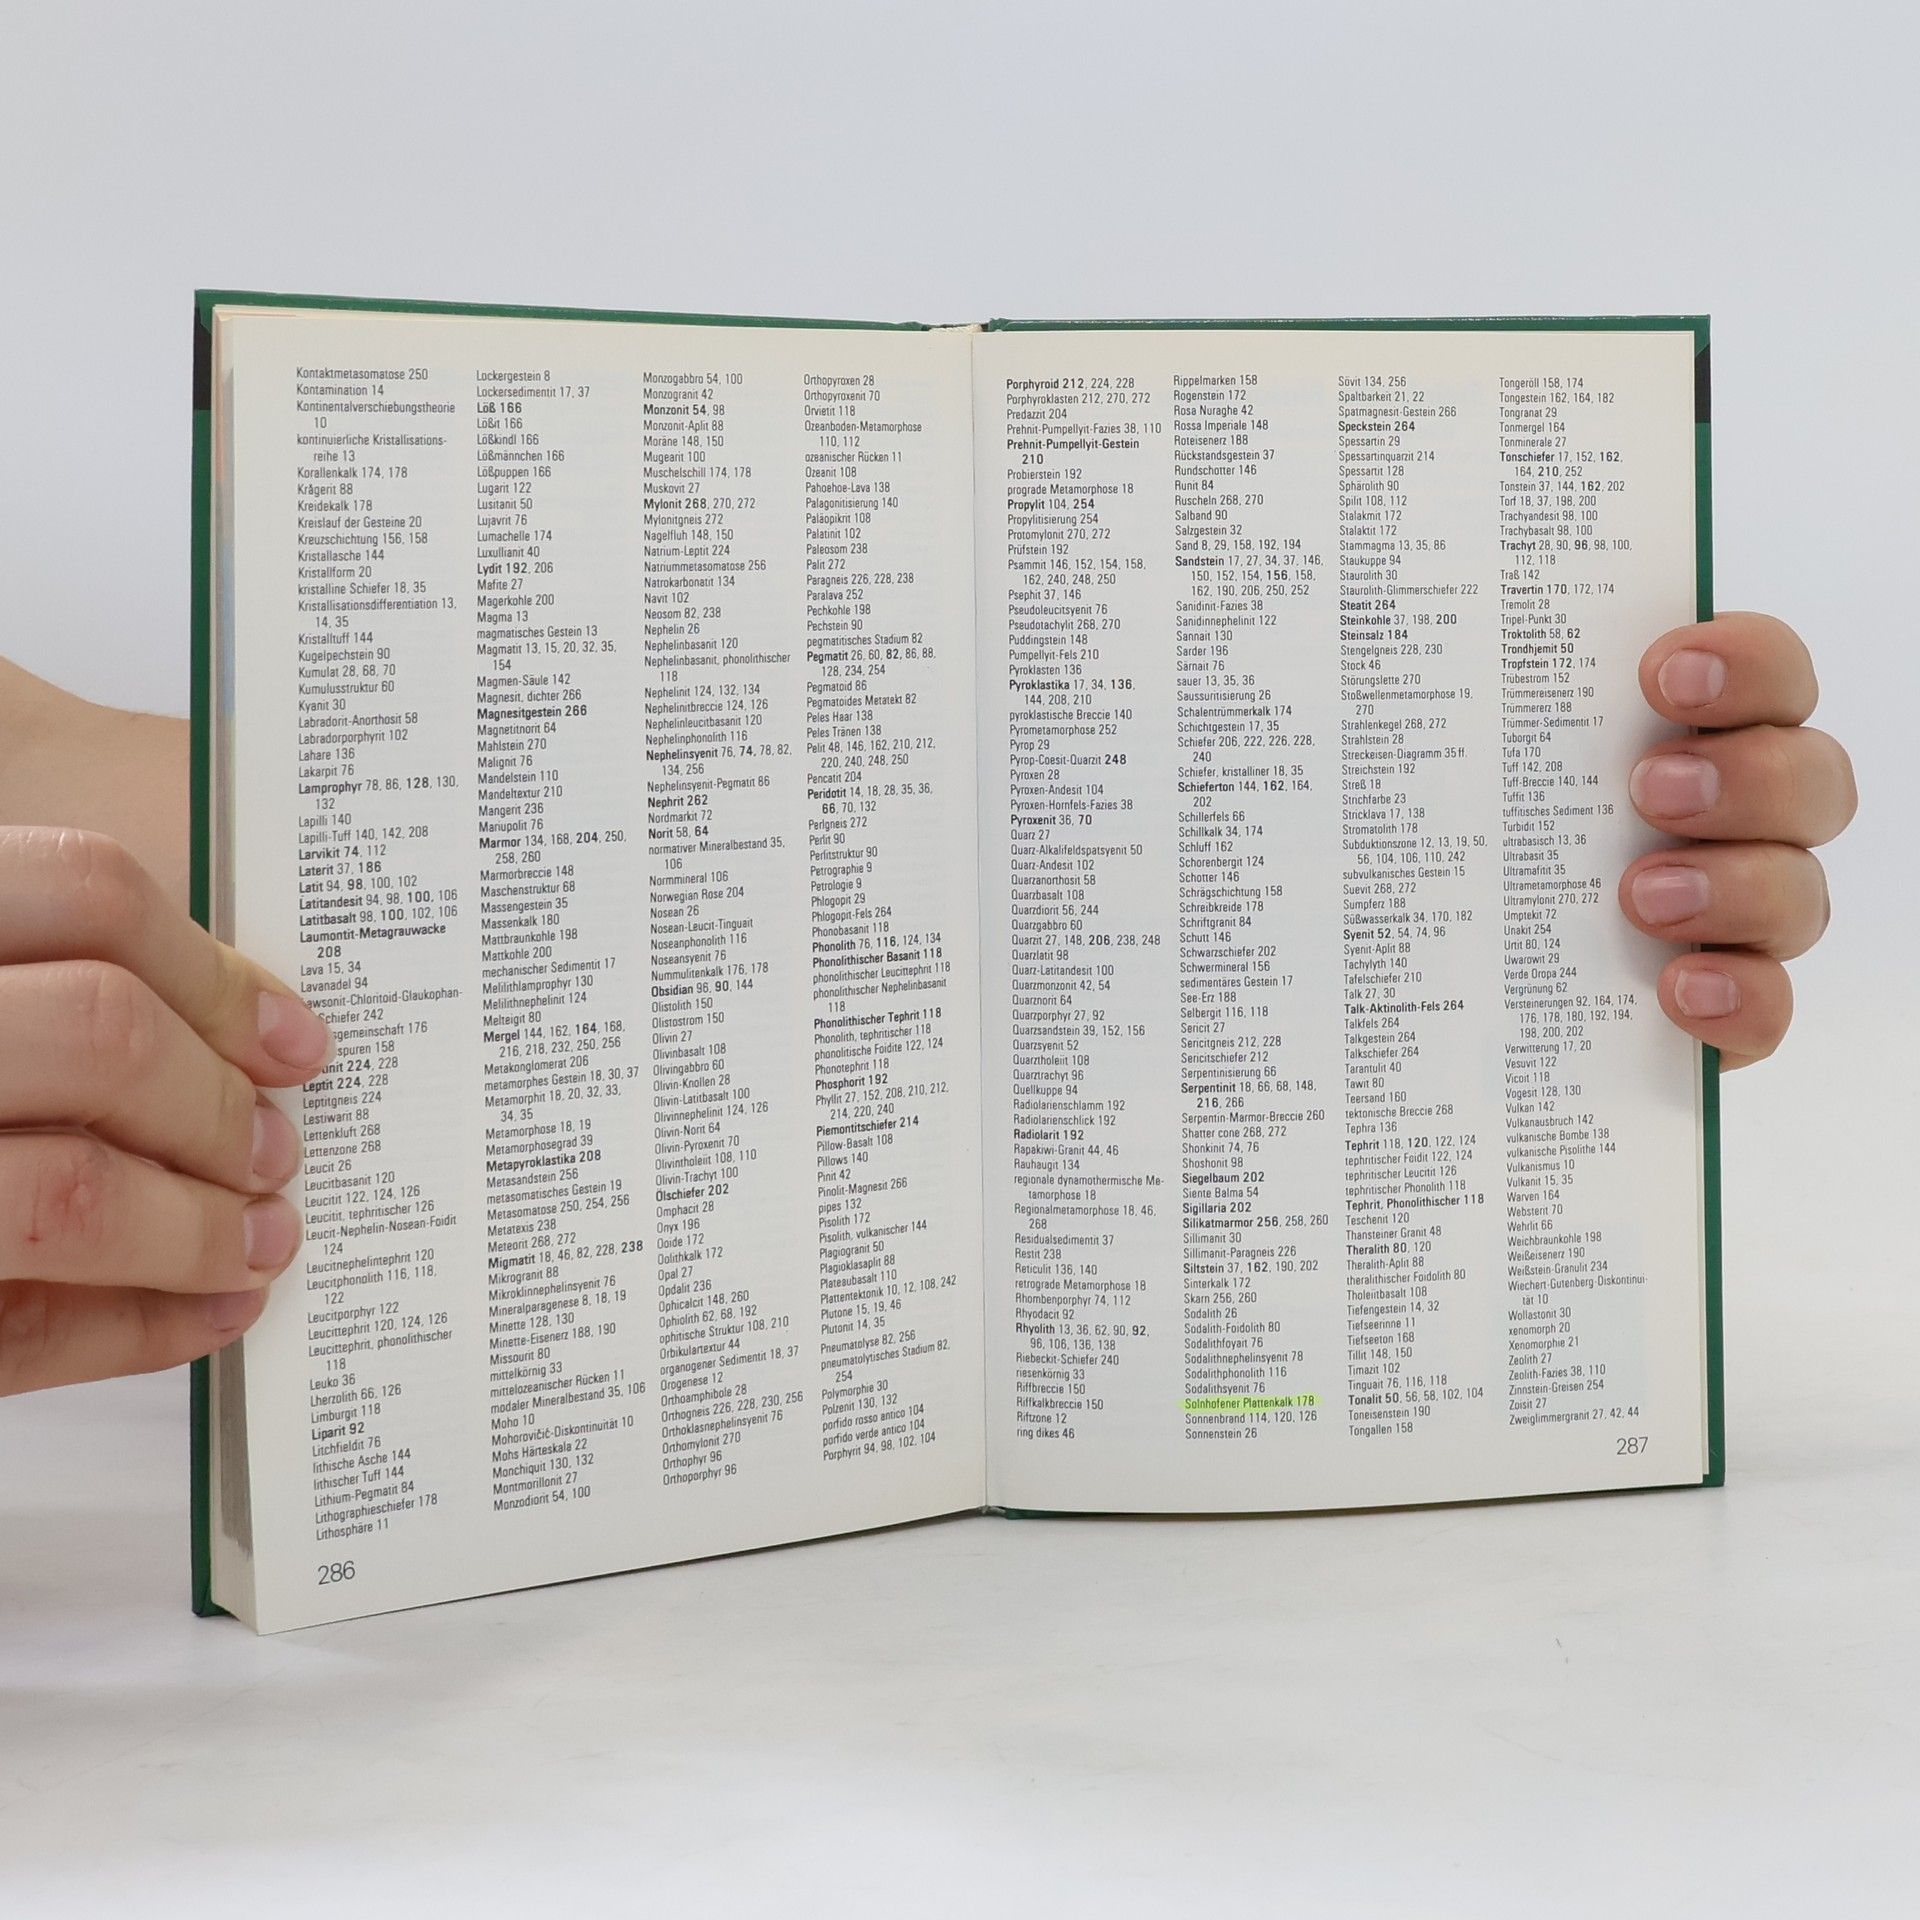 Kontaktmetasomatose 250
Kontamination 14
Kontinentalverschiebungstheorie
10
kontinuierliche Kristallisations-
reihe 13
Korallenkalk 174, 178
Krågerit 88
Kreidekalk 178
Kreislauf der Gesteine 20
Kreuzschichtung 156, 158
Kristallasche 144
Kristallform 20
kristalline Schiefer 18, 35
Kristallisationsdifferentiation 13,
14, 35
Kristalltuff 144
Kugelpechstein 90
Kumulat 28, 68, 70
Kumulusstruktur 60
Kyanit 30
Labradorit-Anorthosit 58
Labradorporphyrit 102
Lahare 136
Lakarpit 76
Lamprophyr 78, 86, 128, 130,
132
Lapilli 140
Lapilli-Tuff 140, 142, 208
Larvikit 74, 112
Laterit 37, 186
Latit 94, 98, 100, 102
Latitandesit 94, 98, 100, 106
Latitbasalt 98, 100, 102, 106
Laumontit-Metagrauwacke
208
Lava 15, 34
Lavanadel 94
awsonit-Chloritoid-Glaukophan-
Schiefer 242
sgemeinschaft 176
spuren 158
init 224, 228
Leptit 224, 228
Leptitgneis 224
Lestiwarit 88
Lettenkluft 268
Lettenzone 268
Leucit 26
Leucitbasanit 120
Leucitit 122, 124, 126
Leucitit, tephritischer 126
Leucit-Nephelin-Nosean-Foidit
124
Leucitnephelintephrit 120
Leucitphonolith 116, 118,
122
Leucitporphyr 122
Leucittephrit 120, 124, 126
Leucittephrit, phonolithischer
118
Leuko 36
Lherzolith 66, 126
Limburgit 118
Liparit 92
Litchfieldit 76
lithische Asche 144
lithischer Tuff 144
Lithium-Pegmatit 84
Lithographieschiefer 178
Lithosphäre 11
Lockergestein 8
Lockersedimentit 17, 37
Löß 166
Lößit 166
Lößkindl 166
Lößmännchen 166
Lößpuppen 166
Lugarit 122
Lusitanit 50
Lujavrit 76
Lumachelle 174
Luxullianit 40
Lydit 192, 206
Mafite 27
Magerkohle 200
Magma 13
magmatisches Gestein 13
Magmatit 13, 15, 20, 32, 35,
154
Magmen-Säule 142
Magnesit, dichter 266
Magnesitgestein 266
Magnetitnorit 64
Mahlstein 270
Malignit 76
Mandelstein 110
Mandeltextur 210
Mangerit 236
Mariupolit 76
Marmor 134, 168, 204, 250,
258, 260
Marmorbreccie 148
Maschenstruktur 68
Massengestein 35
Massenkalk 180
Mattbraunkohle 198
Mattkohle 200
mechanischer Sedimentit 17
Melilithlamprophyr 130
Melilithnephelinit 124
Melteigit 80
Mergel 144, 162, 164, 168,
216, 218, 232, 250, 256
Metakonglomerat 206
metamorphes Gestein 18, 30, 37
Metamorphit 18, 20, 32, 33,
34, 35
Metamorphose 18, 19
Metamorphosegrad 39
Metapyroklastika 208
Metasandstein 256
metasomatisches Gestein 19
Metasomatose 250, 254, 256
Metatexis 238
Meteorit 268, 272
Migmatit 18, 46, 82, 228, 238
Mikrogranit 88
Mikroklinnephelinsyenit 76
Mineralparagenese 8, 18, 19
Minette 128, 130
Minette-Eisenerz 188, 190
Missourit 80
mittelkörnig 33
mittelozeanischer Rücken 11
modaler Mineralbestand 35, 106
Moho 10
Mohorovičić-Diskontinuität 10
Mohs Härteskala 22
Monchiquit 130, 132
Montmorillonit 27
Monzodiorit 54, 100
Monzogabbro 54, 100
Monzogranit 42
Monzonit 54, 98
Monzonit-Aplit 88
Moräne 148, 150
Mugearit 100
Muschelschill 174, 178
Muskovit 27
Mylonit 268, 270, 272
Mylonitgneis 272
Nagelfluh 148, 150
Natrium-Leptit 224
Natriummetasomatose 256
Natrokarbonatit 134
Navit 102
Neosom 82, 238
Nephelin 26
Nephelinbasanit 120
Nephelinbasanit, phonolithischer
118
Nephelinit 124, 132, 134
Nephelinitbreccie 124, 126
Nephelinleucitbasanit 120
Nephelinphonolith 116
Nephelinsyenit 76, 74, 78, 82,
134, 256
Nephelinsyenit-Pegmatit 86
Nephrit 262
Nordmarkit 72
Norit 58, 64
normativer Mineralbestand 35,
106
Normmineral 106
Norwegian Rose 204
Nosean 26
Nosean-Leucit-Tinguait
Noseanphonolith 116
Noseansyenit 76
Nummulitenkalk 176, 178
Obsidian 96, 90, 144
Olistolith 150
Olistostrom 150
Olivin 27
Olivinbasalt 108
Olivingabbro 60
Olivin-Knollen 28
Olivin-Latitbasalt 100
Olivinnephelinit 124, 126
Olivin-Norit 64
Olivin-Pyroxenit 70
Olivintholeiit 108, 110
Olivin-Trachyt 100
Ölschiefer 202
Omphacit 28
Onyx 196
Ooide 172
Oolithkalk 172
Opal 27
Opdalit 236
Ophicalcit 148, 260
Ophiolith 62, 68, 192
ophitische Struktur 108, 210
Orbikulartextur 44
organogener Sedimentit 18, 37
Orogenese 12
Orthoamphibole 28
Orthogneis 226, 228, 230, 256
Orthoklasnephelinsyenit 76
Orthomylonit 270
Orthophyr 96
Orthoporphyr 96
Orthopyroxen 28
Orthopyroxenit 70
Orvietit 118
Ozeanboden-Metamorphose
110, 112
ozeanischer Rücken 11
Ozeanit 108
Pahoehoe-Lava 138
Palagonitisierung 140
Paläopikrit 108
Palatinit 102
Paleosom 238
Palit 272
Paragneis 226, 228, 238
Paralava 252
Pechkohle 198
Pechstein 90
pegmatitisches Stadium 82
Pegmatit 26, 60, 82, 86, 88,
128, 234, 254
Pegmatoid 86
Pegmatoides Metatekt 82
Peles Haar 138
Peles Tränen 138
Pelit 48, 146, 162, 210, 212,
220, 240, 248, 250
Pencatit 204
Peridotit 14, 18, 28, 35, 36,
66, 70, 132
Perlgneis 272
Perlit 90
Perlitstruktur 90
Petrographie 9
Petrologie 9
Phlogopit 29
Phlogopit-Fels 264
Phonobasanit 118
Phonolith 76, 116, 124, 134
Phonolithischer Basanit 118
phonolithischer Leucittephrit 118
phonolithischer Nephelinbasanit
118
Phonolithischer Tephrit 118
Phonolith, tephritischer 118
phonolitische Foidite 122, 124
Phonotephrit 118
Phosphorit 192
Phyllit 27, 152, 208, 210, 212,
214, 220, 240
Piemontitschiefer 214
Pillow-Basalt 108
Pillows 140
Pinit 42
Pinolit-Magnesit 266
pipes 132
Pisolith 172
Pisolith, vulkanischer 144
Plagiogranit 50
Plagioklasaplit 88
Plateaubasalt 110
Plattentektonik 10, 12, 108, 242
Plutone 15, 19, 46
Plutonit 14, 35
Pneumatolyse 82, 256
pneumatolytisches Stadium 82,
254
Polymorphie 30
Polzenit 130, 132
porfido rosso antico 104
porfido verde antico 104
Porphyrit 94, 98, 102, 104
286
Porphyroid 212, 224, 228
Porphyroklasten 212, 270, 272
Predazzit 204
Prehnit-Pumpellyit-Fazies 38, 110
Prehnit-Pumpellyit-Gestein
210
Probierstein 192
prograde Metamorphose 18
Propylit 104, 254
Propylitisierung 254
Protomylonit 270, 272
Prüfstein 192
Psammit 146, 152, 154, 158,
162, 240, 248, 250
Psephit 37, 146
Pseudoleucitsyenit 76
Pseudotachylit 268, 270
Puddingstein 148
Pumpellyit-Fels 210
Pyroklasten 136
Pyroklastika 17, 34, 136,
144, 208, 210
pyroklastische Breccie 140
Pyrometamorphose 252
Pyrop 29
Pyrop-Coesit-Quarzit 248
Pyroxen 28
Pyroxen-Andesit 104
Pyroxen-Hornfels-Fazies 38
Pyroxenit 36, 70
Quarz 27
Quarz-Alkalifeldspatsyenit 50
Quarz-Andesit 102
Quarzanorthosit 58
Quarzbasalt 108
Quarzdiorit 56, 244
Quarzgabbro 60
Quarzit 27, 148, 206, 238, 248
Quarzlatit 98
Quarz-Latitandesit 100
Quarzmonzonit 42, 54
Quarznorit 64
Quarzporphyr 27, 92
Quarzsandstein 39, 152, 156
Quarzsyenit 52
Quarztholeiit 108
Quarztrachyt 96
Quellkuppe 94
Radiolarienschlamm 192
Radiolarienschlick 192
Radiolarit 192
Rapakiwi-Granit 44, 46
Rauhaugit 134
regionale dynamothermische Me-
tamorphose 18
Regionalmetamorphose 18, 46,
268
Residualsedimentit 37
Restit 238
Reticulit 136, 140
retrograde Metamorphose 18
Rhombenporphyr 74, 112
Rhyodacit 92
Rhyolith 13, 36, 62, 90, 92,
96, 106, 136, 138
Riebeckit-Schiefer 240
riesenkörnig 33
Riffbreccie 150
Riffkalkbreccie 150
Riftzone 12
ring dikes 46
Rippelmarken 158
Rogenstein 172
Rosa Nuraghe 42
Rossa Imperiale 148
Roteisenerz 188
Rückstandsgestein 37
Rundschotter 146
Runit 84
Ruscheln 268, 270
Salband 90
Salzgestein 32
Sand 8, 29, 158, 192, 194
Sandstein 17, 27, 34, 37, 146,
150, 152, 154, 156, 158,
162, 190, 206, 250, 252
Sanidinit-Fazies 38
Sanidinnephelinit 122
Sannait 130
Sarder 196
Särnait 76
sauer 13, 35, 36
Saussuritisierung 26
Schalentrümmerkalk 174
Schichtgestein 17, 35
Schiefer 206, 222, 226, 228,
240
Schiefer, kristalliner 18, 35
Schieferton 144, 162, 164,
202
Schillerfels 66
Schillkalk 34, 174
Schluff 162
Schorenbergit 124
Schotter 146
Schrägschichtung 158
Schreibkreide 178
Schriftgranit 84
Schutt 146
Schwarzschiefer 202
Schwermineral 156
sedimentäres Gestein 17
See-Erz 188
Selbergit 116, 118
Sericit 27
Sericitgneis 212, 228
Sericitschiefer 212
Serpentinisierung 66
Serpentinit 18, 66, 68, 148,
216, 266
Serpentin-Marmor-Breccie 260
Shatter cone 268, 272
Shonkinit 74, 76
Shoshonit 98
Siegelbaum 202
Siente Balma 54
Sigillaria 202
Silikatmarmor 256, 258, 260
Sillimanit 30
Sillimanit-Paragneis 226
Siltstein 37, 162, 190, 202
Sinterkalk 172
Skarn 256, 260
Sodalith 26
Sodalith-Foidolith 80
Sodalithfoyait 76
Sodalithnephelinsyenit 78
Sodalithphonolith 116
Sodalithsyenit 76
Solnhofener Plattenkalk 178
Sonnenbrand 114, 120, 126
Sonnenstein 26
Sövit 134, 256
Spaltbarkeit 21, 22
Spatmagnesit-Gestein 266
Speckstein 264
Spessartin 29
Spessartinquarzit 214
Spessartit 128
Sphärolith 90
Spilit 108, 112
Stalakmit 172
Stalaktit 172
Stammagma 13, 35, 86
Staukuppe 94
Staurolith 30
Staurolith-Glimmerschiefer 222
Steatit 264
Steinkohle 37, 198, 200
Steinsalz 184
Stengelgneis 228, 230
Stock 46
Störungslette 270
Stoßwellenmetamorphose 19,
270
Strahlenkegel 268, 272
Strahlstein 28
Streckeisen-Diagramm 35 ff.
Streichstein 192
Streß 18
Strichfarbe 23
Stricklava 17, 138
Stromatolith 178
Subduktionszone 12, 13, 19, 50,
56, 104, 106, 110, 242
subvulkanisches Gestein 15
Suevit 268, 272
Sumpferz 188
Süßwasserkalk 34, 170, 182
Syenit 52, 54, 74, 96
Syenit-Aplit 88
Tachylyth 140
Tafelschiefer 210
Talk 27, 30
Talk-Aktinolith-Fels 264
Talkfels 264
Talkgestein 264
Talkschiefer 264
Tarantulit 40
Tawit 80
Teersand 160
tektonische Breccie 268
Tephra 136
Tephrit 118, 120, 122, 124
tephritischer Foidit 122, 124
tephritischer Leucitit 126
tephritischer Phonolith 118
Tephrit, Phonolithischer 118
Teschenit 120
Thansteiner Granit 48
Theralith 80, 120
Theralith-Aplit 88
theralithischer Foidolith 80
Tholeiitbasalt 108
Tiefengestein 14, 32
Tiefseerinne 11
Tiefseeton 168
Tillit 148, 150
Timazit 102
Tinguait 76, 116, 118
Tonalit 50, 56, 58, 102, 104
Toneisenstein 190
Tongallen 158
Tongeröll 158, 174
Tongestein 162, 164, 182
Tongranat 29
Tonmergel 164
Tonminerale 27
Tonschiefer 17, 152, 162,
164, 210, 252
Tonstein 37, 144, 162, 202
Torf 18, 37, 198, 200
Trachyandesit 98, 100
Trachybasalt 98, 100
Trachyt 28, 90, 96, 98, 100,
112, 118
Traß 142
Travertin 170, 172, 174
Tremolit 28
Tripel-Punkt 30
Troktolith 58, 62
Trondhjemit 50
Tropfstein 172, 174
Trübestrom 152
Trümmereisenerz 190
Trümmererz 188
Trümmer-Sedimentit 17
Tuborgit 64
Tufa 170
Tuff 142, 208
Tuff-Breccie 140, 144
Tuffit 136
tuffitisches Sediment 136
Turbidit 152
ultrabasisch 13, 36
Ultrabasit 35
Ultramafitit 35
Ultrametamorphose 46
Ultramylonit 270, 272
Umptekit 72
Unakit 254
Urtit 80, 124
Uwarowit 29
Verde Oropa 244
Vergrünung 62
Versteinerungen 92, 164, 174,
176, 178, 180, 192, 194,
198, 200, 202
Verwitterung 17, 20
Vesuvit 122
Vicoit 118
Vogesit 128, 130
Vulkan 142
Vulkanausbruch 142
vulkanische Bombe 138
vulkanische Pisolithe 144
Vulkanismus 10
Vulkanit 15, 35
Warven 164
Websterit 70
Wehrlit 66
Weichbraunkohle 198
Weißeisenerz 190
Weißstein-Granulit 234
Wiechert-Gutenberg-Diskontinui-
tät 10
Wollastonit 30
xenomorph 20
Xenomorphie 21
Zeolith 27
Zeolith-Fazies 38, 110
Zinnstein-Greisen 254
Zoisit 27
Zweiglimmergranit 27, 42, 44
287